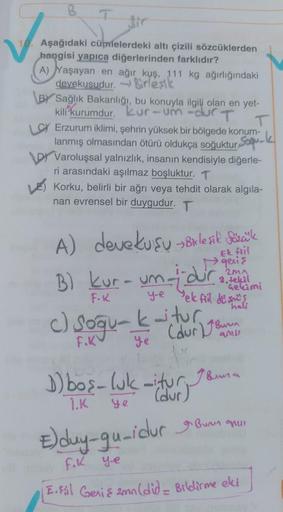 B T dir
Aşağıdaki cümlelerdeki altı çizili sözcüklerden
hangisi yapıca diğerlerinden farklıdır?
A) Yaşayan en ağır kuş, 111 kg ağırlığındaki
devekuşudur. → Birleşik
B) Sağlık Bakanlığı, bu konuyla ilgili olan en yet-
kili kurumdur. kur-um-dur T
C) Erzurum iklimi, şehrin yüksek bir bölgede konum- T
lanmış olmasından ötürü oldukça soğuktur. Soğu-k
D) Varoluşsal yalnızlık, insanın kendisiyle diğerle-
ri arasındaki aşılmaz boşluktur. T
E) Korku, belirli bir ağrı veya tehdit olarak algıla-
nan evrensel bir duygudur. T
A) devekuşu → Birleşik Sözcük
Ek fiil
geniş
zmn
B) kur-um-i-dir 3. tekil
çekimi
F.K y.e ek fiil
hali
C) Soğu-k-itur
F.K ye (dur) Bunn
D) boş-luk-itur
(dur)
İ.K ye
E) duy-gu-idur
F.K y.e
E.fiil Geniş zmn (dir) = Bildirme eki